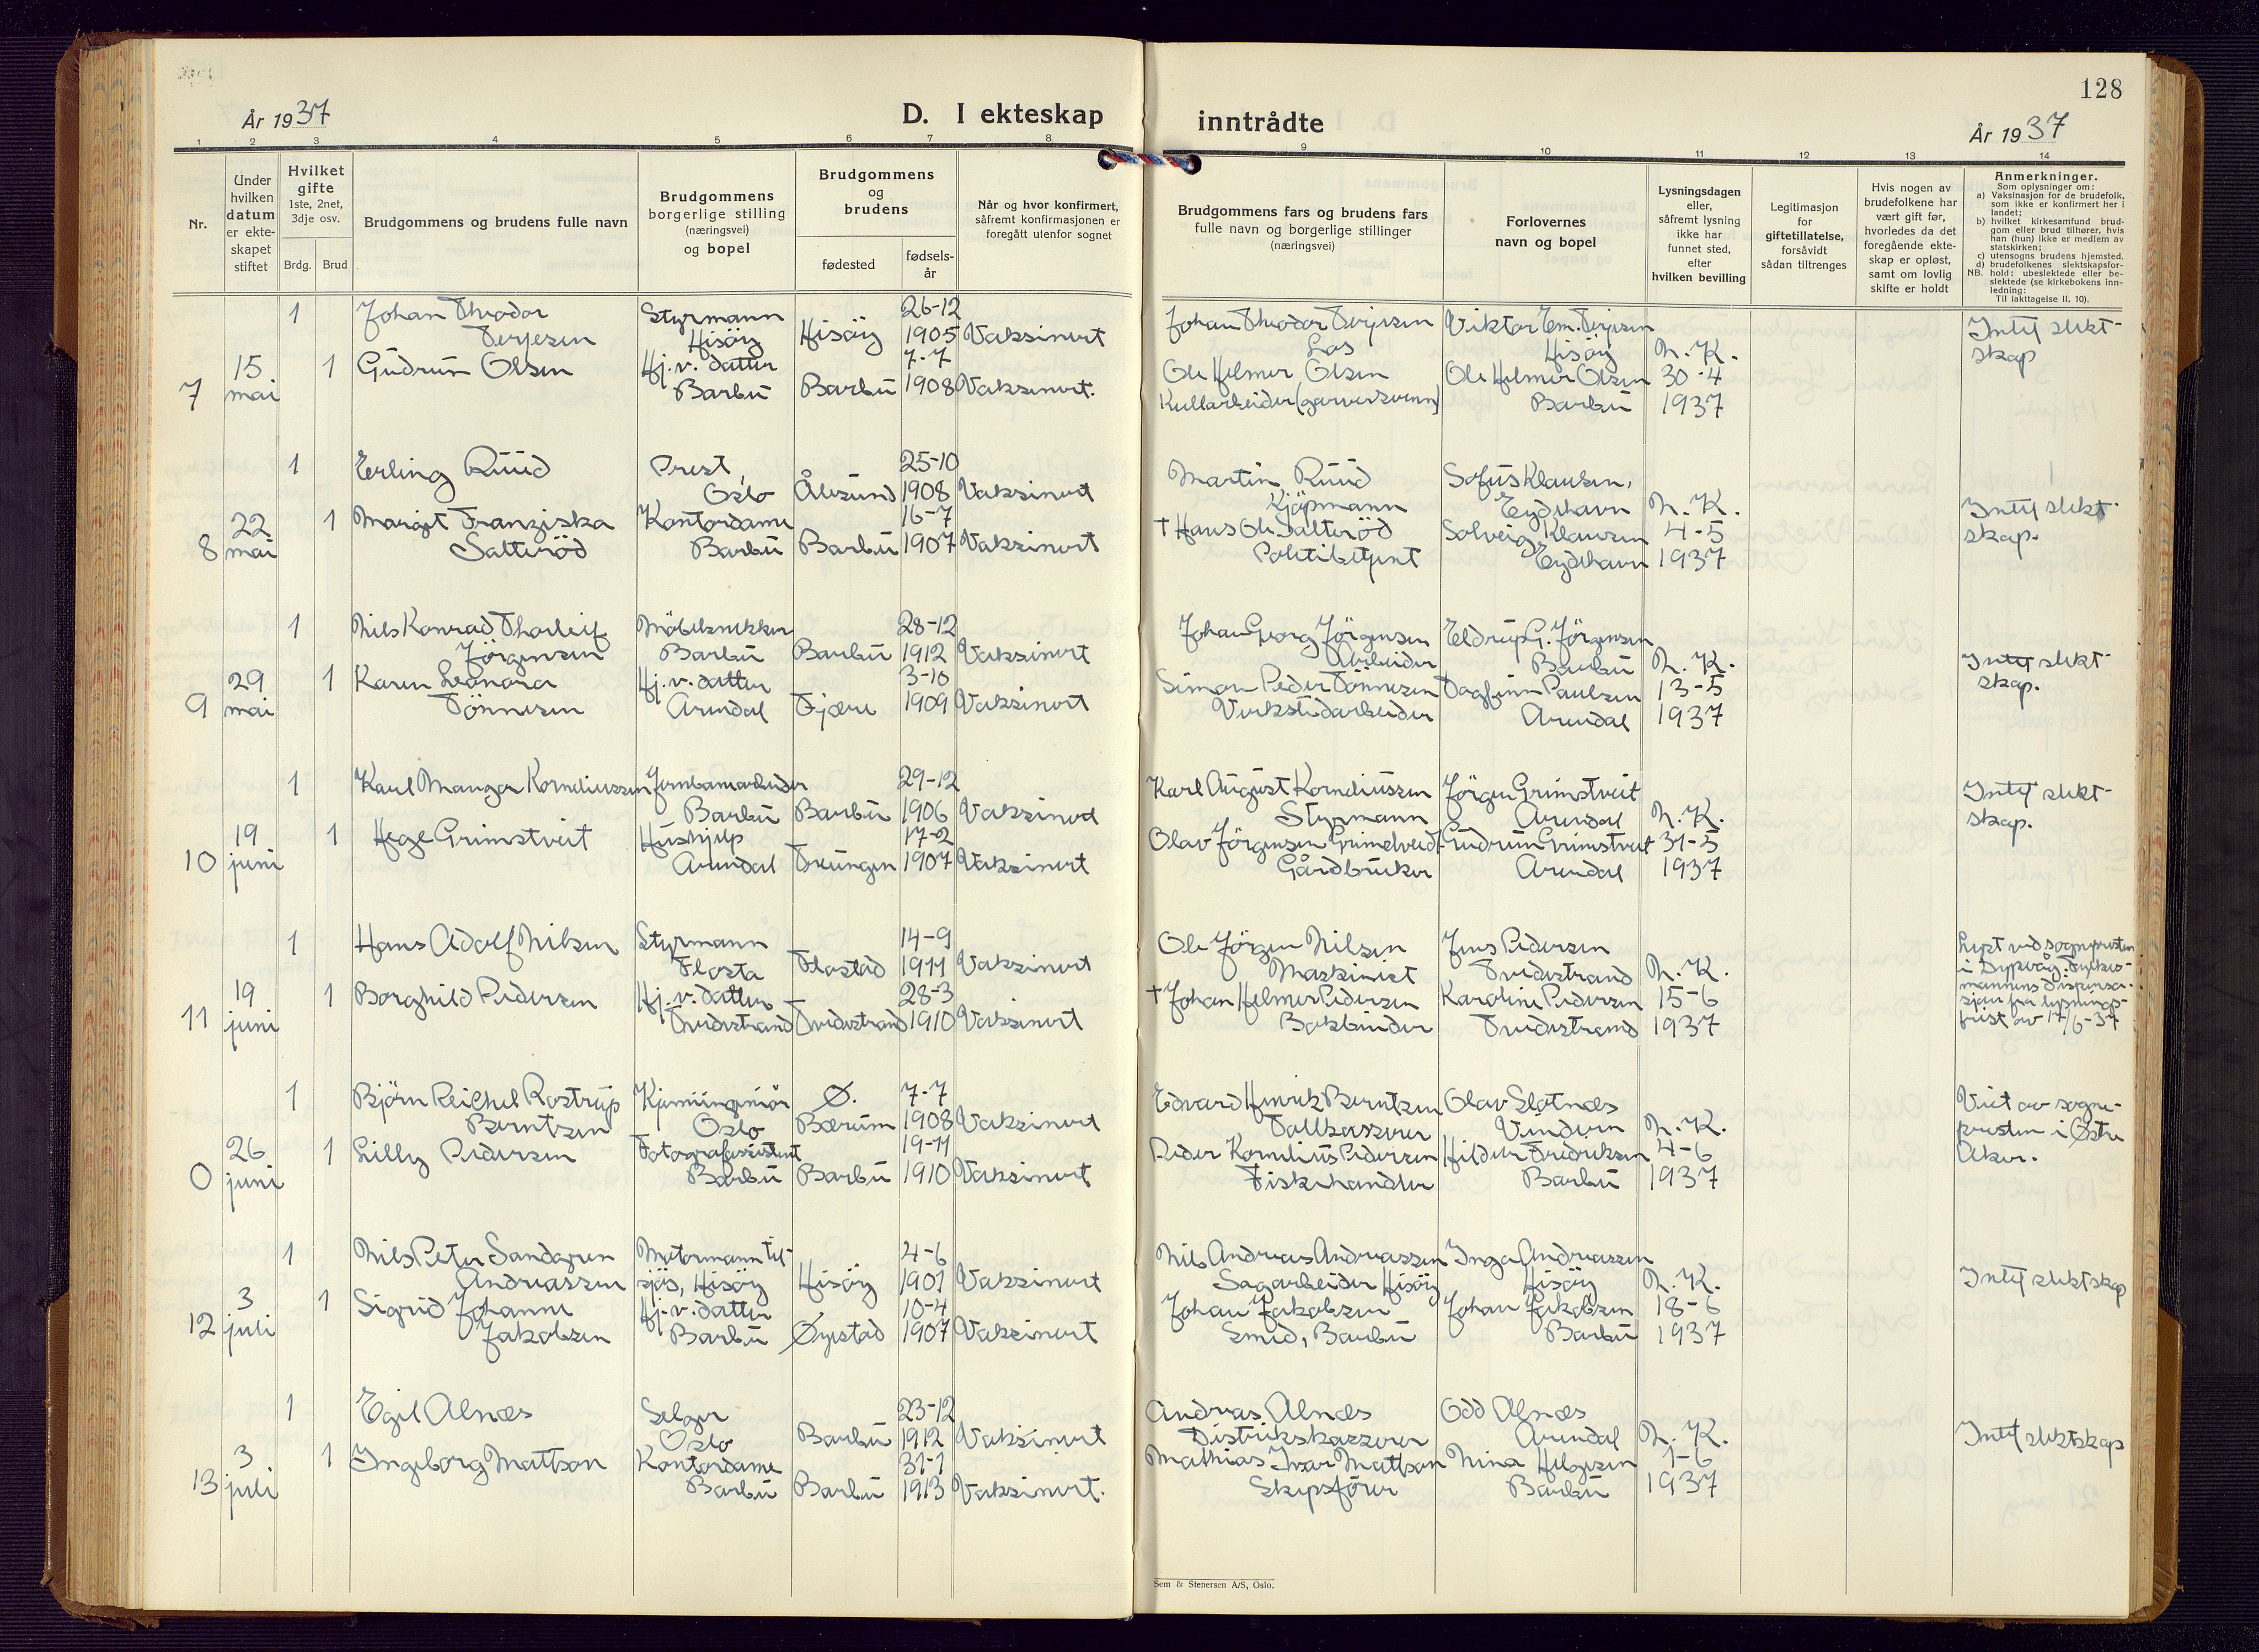 128
År 1937
D. I ekteskap
inntrådte
År 1937
1 2 3 4 5 6 7 8 9 10 11 12 13 14
Nr.
Under
hvilken
datum
er ekte-
skapet
stiftet
Hvilket
gifte
1ste, 2net,
3dje osv.
Brdg. Brud
Brudgommens og brudens fulle navn
Brudgommens
borgerlige stilling
(næringsvei)
og bopel
Brudgommens
og
brudens
fødested
fødsels-
år
Når og hvor konfirmert,
såfremt konfirmasjonen er
foregått utenfor sognet
Brudgommens fars og brudens fars
fulle navn og borgerlige stillinger
(næringsvei)
Forlovernes
navn og bopel
Lysningsdagen
eller,
såfremt lysning
ikke har
funnet sted,
efter
hvilken bevilling
Legitimasjon
for
giftetillatelse,
forsåvidt
sådan tiltrenges
Hvis nogen av
brudefolkene har
vært gift før,
hvorledes da det
foregående ekte-
skap er opløst,
samt om lovlig
skifte er holdt
Anmerkninger.
Som oplysninger om:
a) Vaksinasjon for de brudefolk,
som ikke er konfirmert her i
landet;
b) hvilket kirkesamfund brud-
gom eller brud tilhører, hvis
han (hun) ikke er medlem av
statskirken;
c) utensogns brudens hjemsted.
d) brudefolkenes slektskapsfor-
NB. hold: ubeslektede eller be-
slektede (se kirkebokens inn-
ledning:
Til iakttagelse II, 10).
1 Johan Theodor Styrmann 26-12 Johan Theodor Terjesen Viktor Em. Terjesen Intet slekt-
Terjesen Hisöy Hisöy 1905 Vaksinert Los Hisöy N.K. skap
15 1 Gudrun Olsen Hj.v. datter 7-7 Ole Helmer Olsen Ole Helmer Olsen 30-4
7 mai Barbu Barbu 1908 Vaksinert. Kullarbeider (garversvenn) Barbu 1937
1 Erling Ruud Prest, 25-10 Martin Ruud Sofus Klausen,
Oslo Ålesund 1908 Vaksinert Kjöpmann Eydehavn N.K. Intet slekt-
22 1 Margit Franziska Kontordame 16-7 † Hans Ole Salteröd Solveig Klausen 4-5 skap.
8 mai Salteröd Barbu Barbu 1907 Vaksinert Politibetjent Eydehavn 1937
1 Nils Konrad Thorleif Möbelsnekker 28-12 Johan Georg Jörgensen Eldrup G. Jörgensen
Jörgensen Barbu Barbu 1912 Vaksinert Arbeider Barbu N.K. Intet slekt-
29 1 Karen Leonora Hj.v. datter 3-10 Simon Peder Tönnesen Dagfinn Paulsen 13-5 skap.
9 mai Tönnesen Arendal Fjære 1909 Vaksinert Verkstedarbeider Arendal 1937
1 Karl Manger Korneliussen Jernbanearbeider 29-12 Karl August Korneliussen Jörgen Grimstveit Intet slekt-
Barbu Barbu 1906 Vaksinert Styrmann Arendal N.K. skap.
19 1 Hege Grimstveit Hushjelp 17-2 Olav Jörgensen Grimstveit Gudrun Grimstveit 31-5
10 juni Arendal Treungen 1907 Vaksinert Gårdbruker Arendal 1937
1 Hans Adolf Nilsen Styrmann 14-9 Ole Jörgen Nilsen Jens Pedersen Lyst ved sognepresten
Flosta Flostad 1911 Vaksinert Maskinist Tvedestrand N.K. i Dypvåg. Fylkes-
19 1 Borghild Pedersen Hj.v. datter 28-3 † Johan Helmer Pedersen Karoline Pedersen 15-6 mannens dispensa-
11 juni Tvedestrand Tvedestrand 1910 Vaksinert Bokbinder Tvedestrand 1937 sjon fra lysnings-
frist av 17/6-37
1 Björn Reichel Rostrup Kjemiingeniör Ø. 7-7 Edvard Henrik Berntsen Olav Slotnæs Viet av sogne-
Berntsen Oslo Bærum 1908 Vaksinert Tollkasserer Vinderen N.K. presten i Østre
26 1 Lilly Pedersen Fotografassistent 19-11 Peder Kornelius Pedersen Hildur Fredriksen 4-6 Aker.
0 juni Barbu Barbu 1910 Vaksinert Fiskehandler Barbu 1937
1 Nils Peter Sandgren Motormann til- 4-6 Nils Andreas Andreassen Inga Andreassen
Andreassen sjös, Hisöy Hisöy 1901 Vaksinert Sagarbeider Hisöy Hisöy N.K. Intet slektskap
3 1 Sigrid Johanne Hj.v. datter 10-4 Johan Jakobsen Johan Jakobsen 18-6
12 juli Jakobsen Barbu Øyestad 1907 Vaksinert Smed, Barbu Barbu 1937
1 Egil Alnæs Selger 23-12 Andreas Alnæs Odd Alnæs
Oslo Barbu 1912 Vaksinert Distrikskasserer Arendal N.K. Intet slektskap
3 1 Ingeborg Mattson Kontordame 31-1 Mathias Ivar Mattson Nina Helgesen 1-6
13 juli Barbu Barbu 1913 Vaksinert. Skipsförer Barbu 1937
Sem & Stenersen A/S, Oslo.